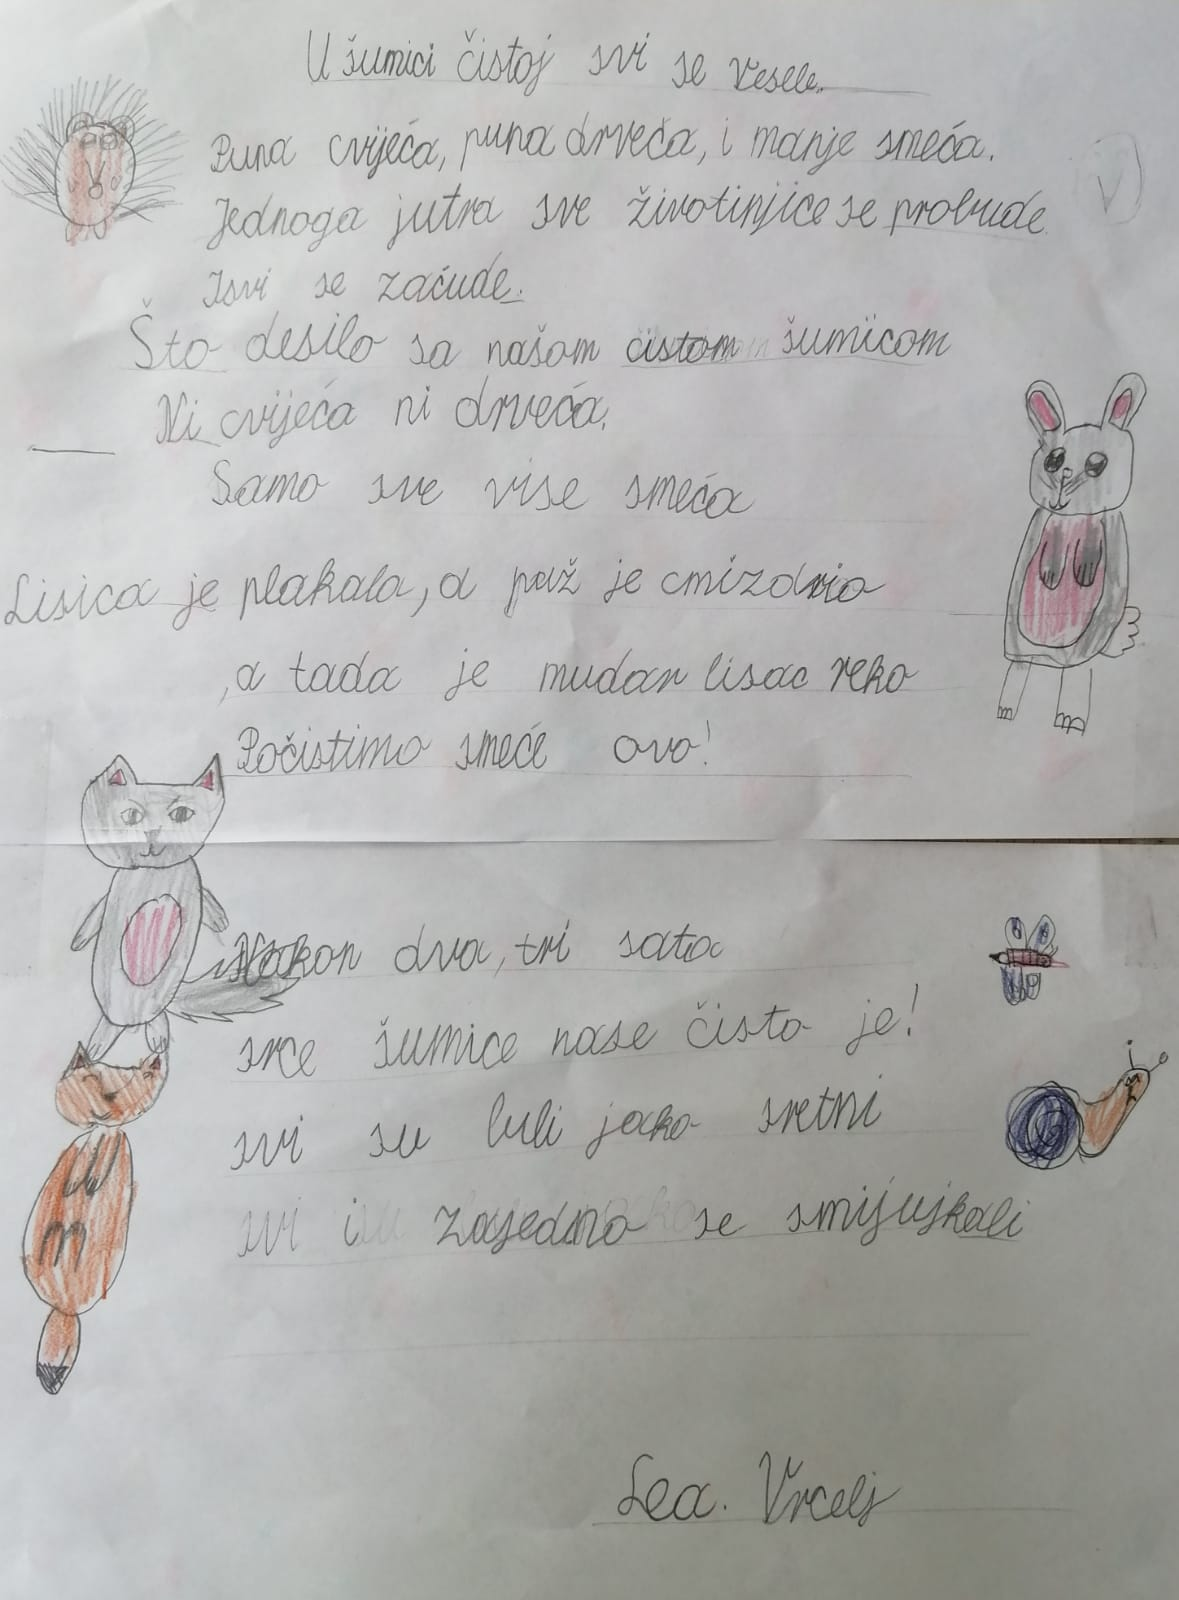 U šumici čistoj svi se vesele.
Puna cvijeća, puna drveća, i manje smeća.
Jednoga jutra sve životinjice se probude
I svi se začude.
Što desilo sa našom čistom šumicom
Ni cvijeća ni drveća.
Samo sve vise smeća
Lisica je plakala, a puž je cmizdrio
, a tada je mudar lisac reko
Počistimo smeće ovo!
Nakon dva, tri sata
srce šumice nase čisto je!
svi su buli jako sretni
svi i zajedno se smijujkali
Lea. Vrcelj